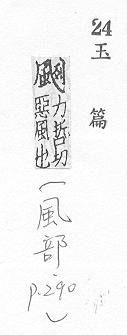 24
玉篇
力哲切
惡風也
(風部
p.290)